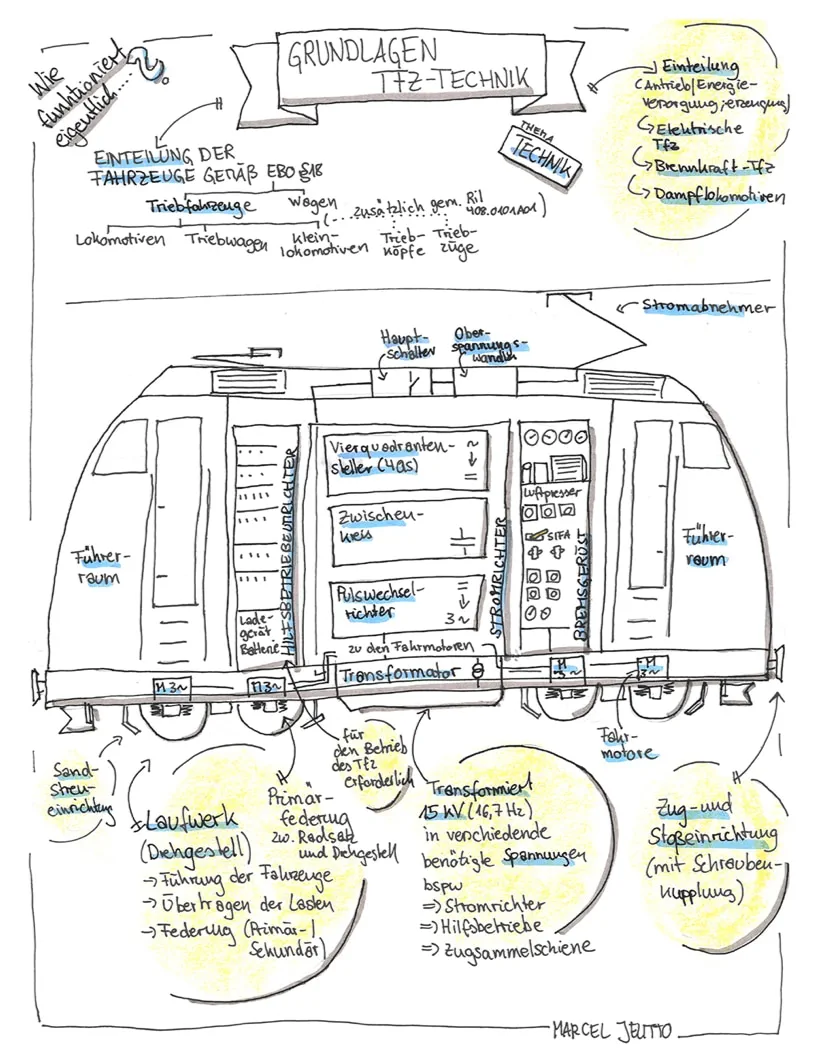 Wie
funktioniert
eigentlich....?
GRUNDLAGEN
TFZ-TECHNIK
THEMA
TECHNIK
Einteilung
(Antrieb/Energie-
versorgung;erzeugung)
↳ Elektrische
Tfz
↳ Brennkraft-Tfz
↳ Dampflokomotiven
EINTEILUNG DER
FAHRZEUGE GEMÄß EBO §18
Triebfahrzeuge
Wagen
(....zusätzlich gem. Ril
408.0101A01)
Lokomotiven
Triebwagen
Klein-
lokomotiven
Trieb-
köpfe
Trieb-
züge
Stromabnehmer
Haupt-
schalter
Ober-
spannungs-
wandler
Führer-
raum
HILFSBETRIEBEUMRICHTER
Lade-
gerät
Batterie
Vierquadranten-
steller (4QS)
~
↓
=
Zwischen-
kreis
Pulswechsel-
richter
=
↓
3~
STROMRICHTER
Luftpresser
SIFA
BREMSGERÜST
Führer-
raum
zu den Fahrmotoren
Transformator
M 3~
M 3~
M
3~
M
3~
Sand-
streu-
einrichtung
Laufwerk
(Drehgestell)
→ Führung der Fahrzeuge
→ Übertragen der Lasten
→ Federung (Primär-/
Sekundär)
Primär-
federung
zw. Radsatz
und Drehgestell
für
den Betrieb
des Tfz
erforderlich
Transformiert
15 kV (16,7 Hz)
in verschiedende
benötigte Spannungen
bspw
⇒ Stromrichter
⇒ Hilfsbetriebe
⇒ Zugsammelschiene
Fahr-
motore
Zug- und
Stoßeinrichtung
(mit Schrauben-
kupplung)
MARCEL JELITTO